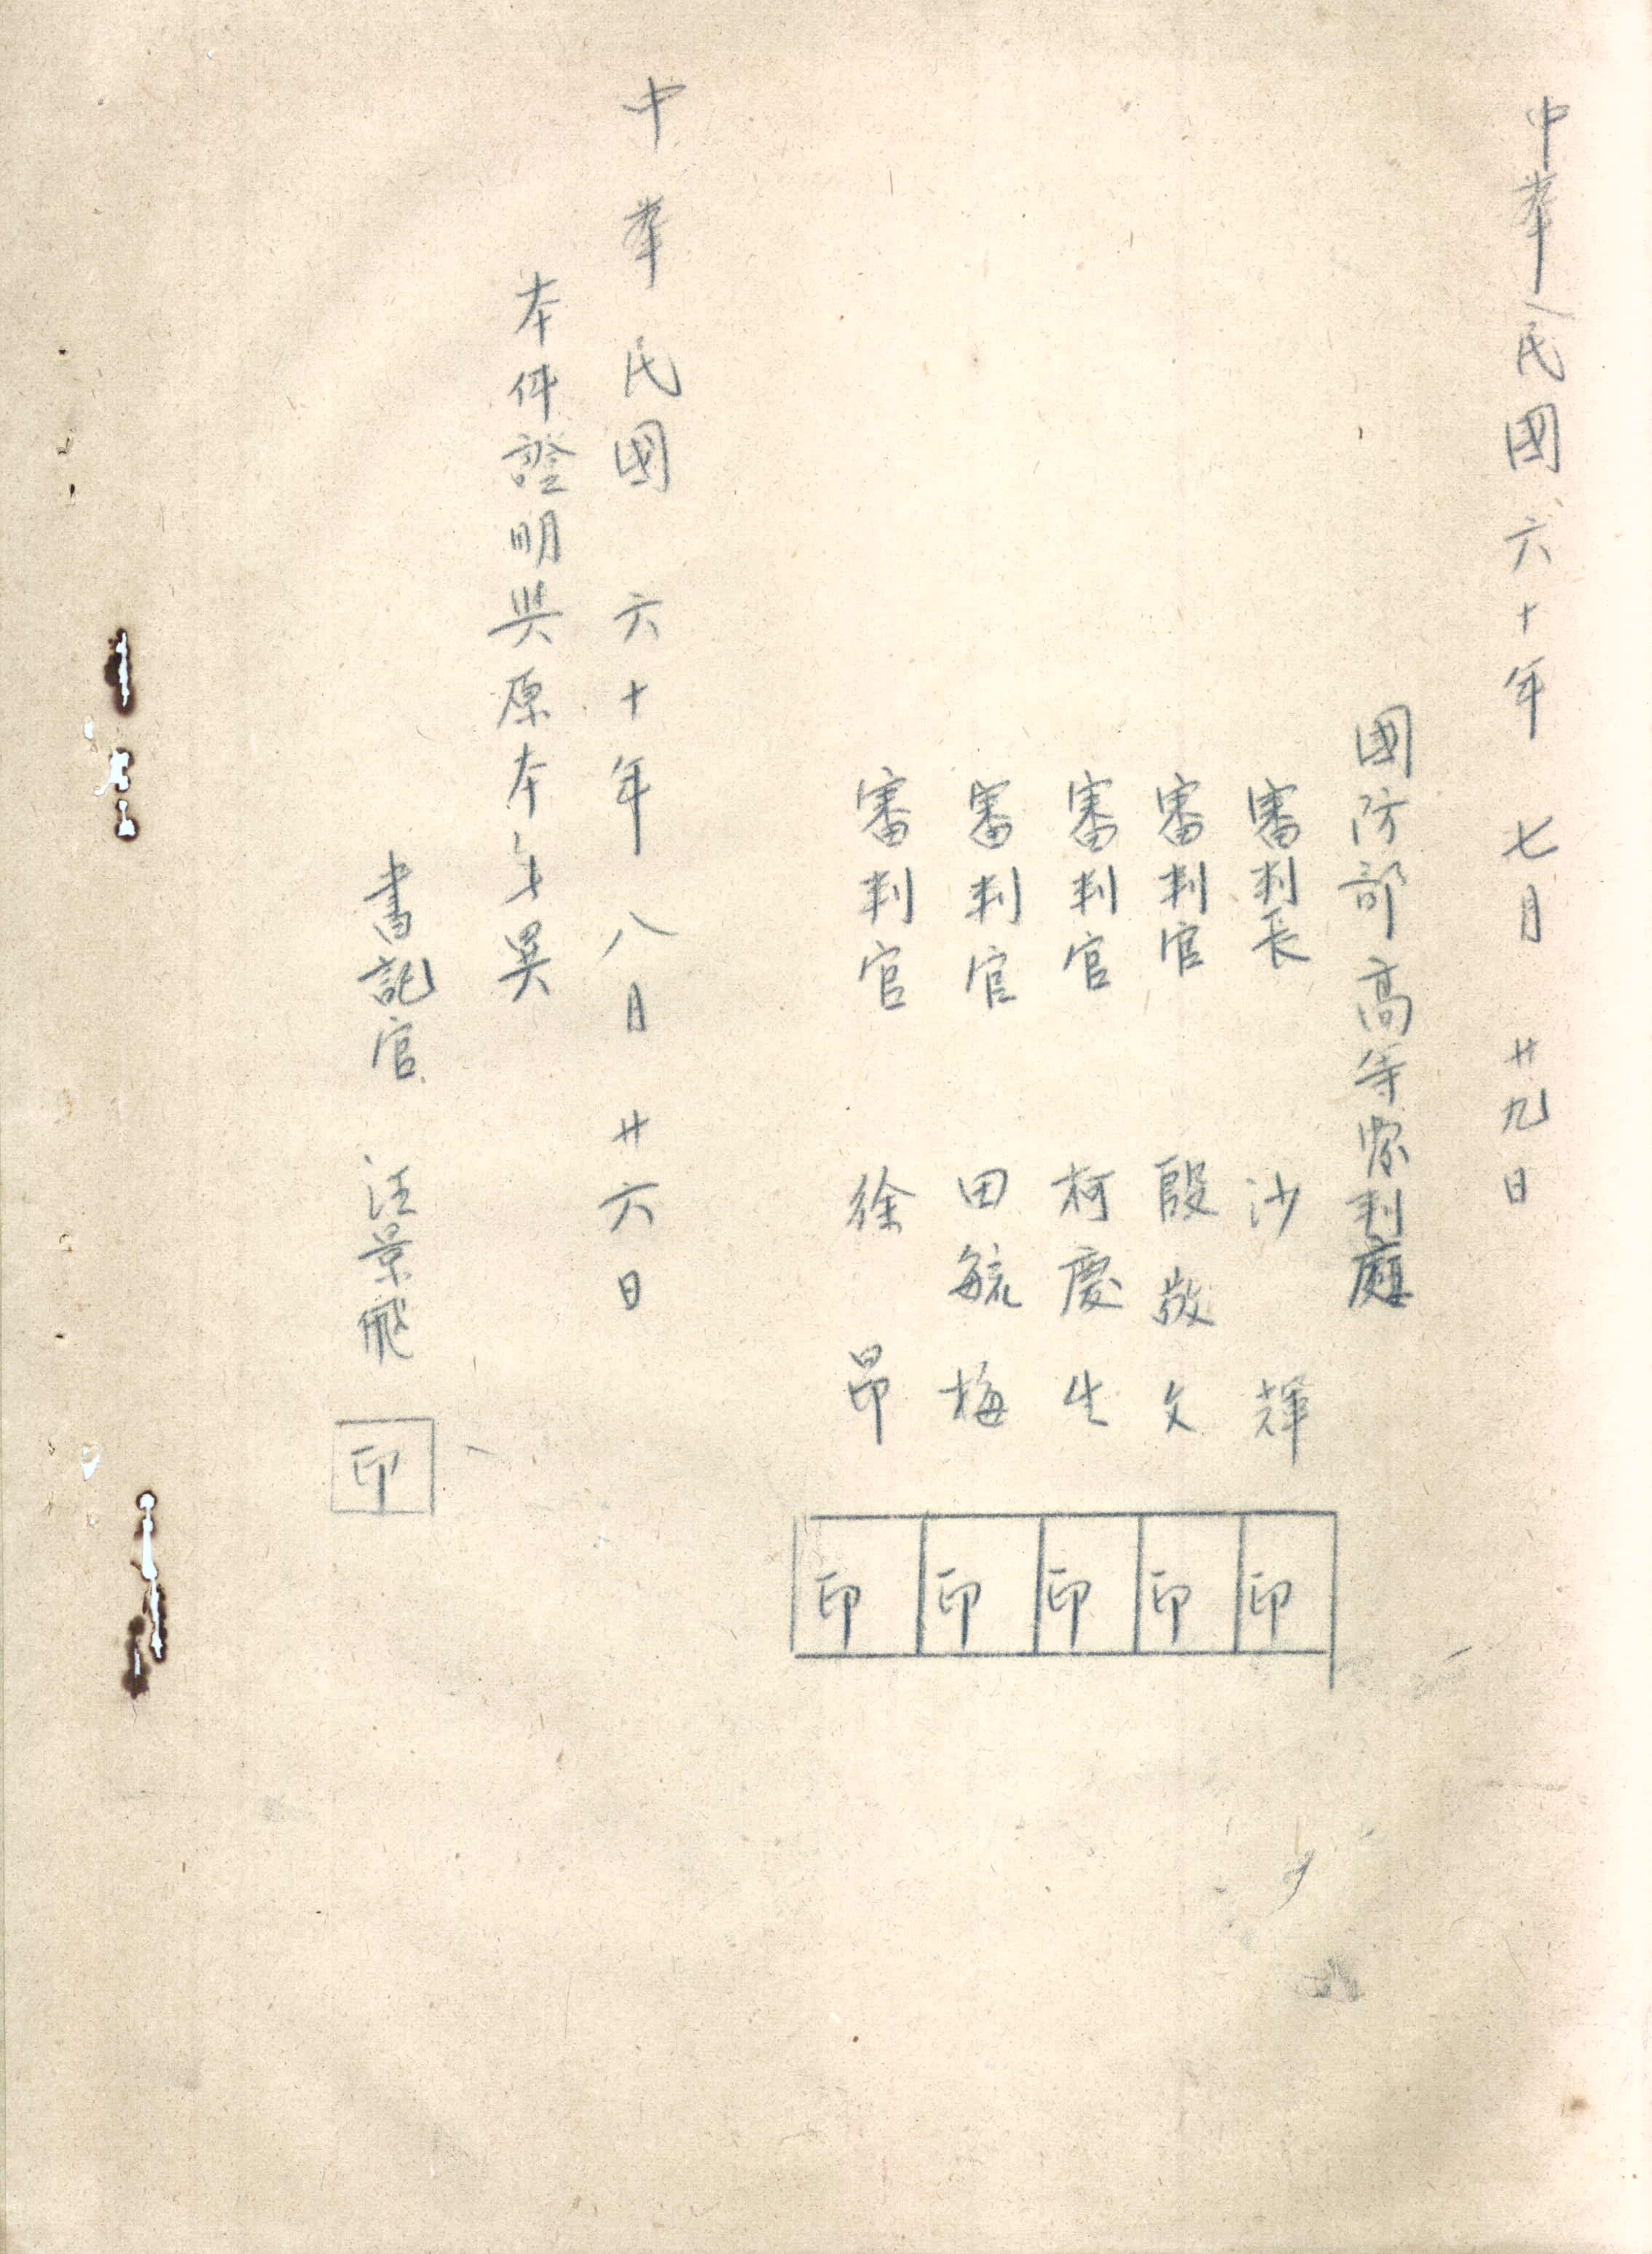 中華民國六十年 七月 廿九日
國防部高等審判庭
審判長 沙 輝 印
審判官 殷敬文 印
審判官 柯慶生 印
審判官 田毓梅 印
審判官 徐 昂 印
中華民國 六十年 八月 廿六日
本件證明與原本無異
書記官 汪景飛 印